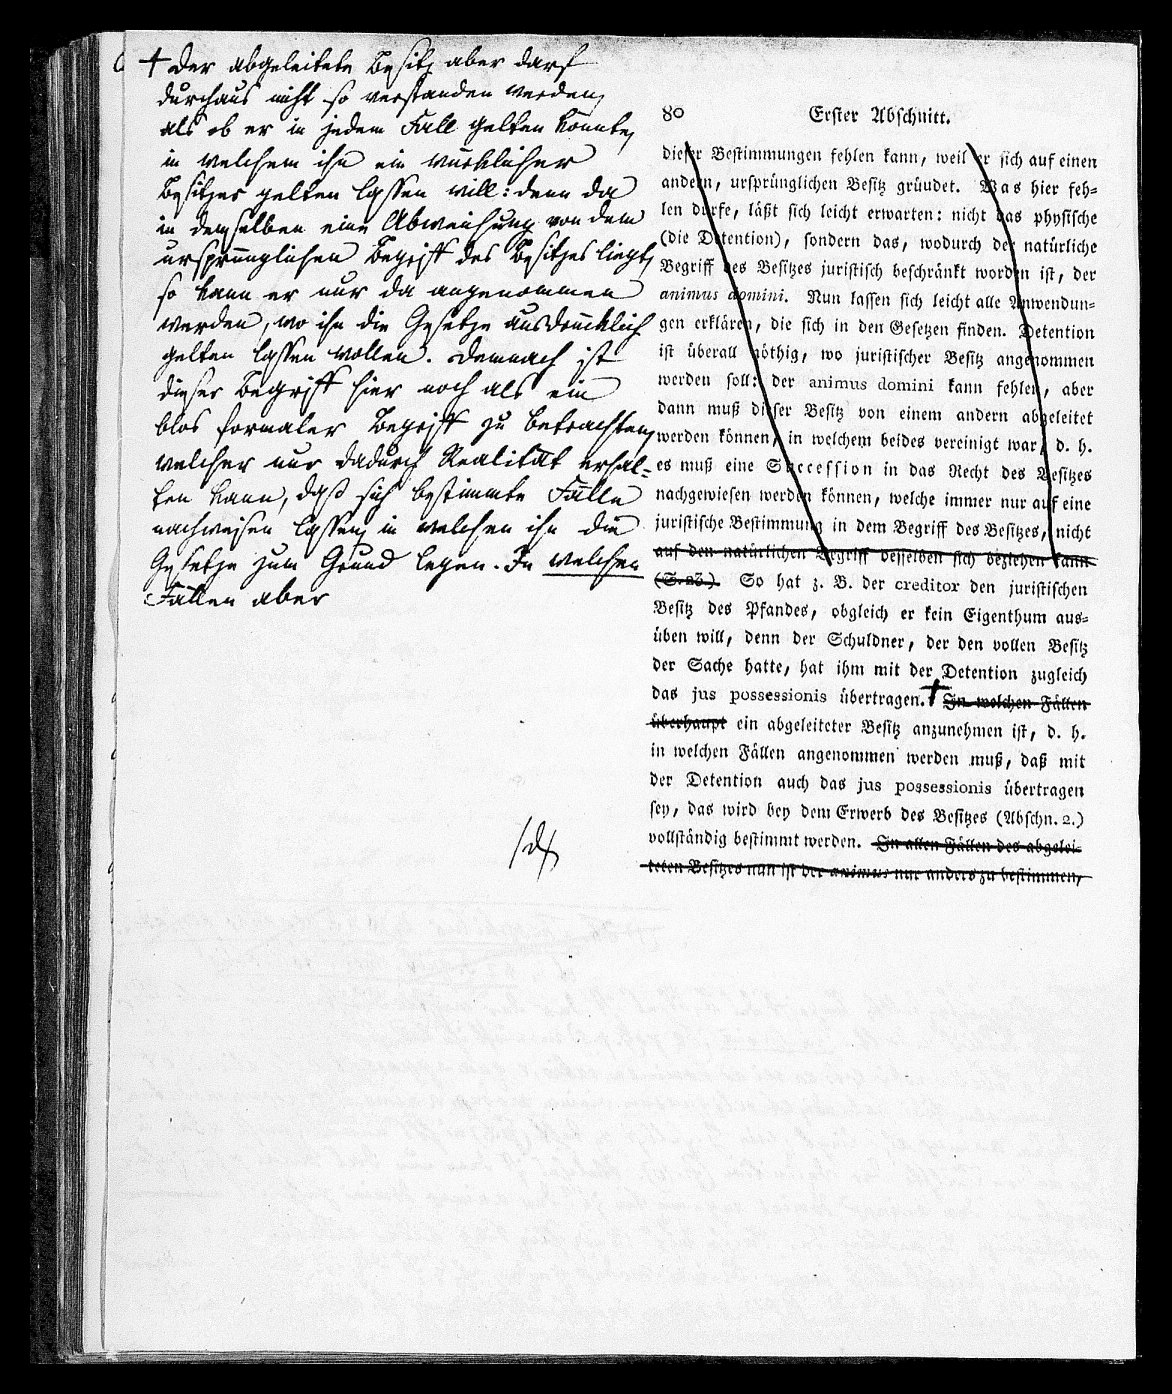 † Der abgeleitete Besitz aber darf
durchaus nicht so verstanden werden,
als ob er in jedem Fall gelten könnte,
in welchem ihn ein würklicher
Besitzer gelten lassen will: denn da
in demselben eine Abweichung von dem
ursprünglichen Begriff des Besitzes liegt,
so kann er nur da angenommen
werden, wo ihn die Gesetze ausdrücklich
gelten lassen wollen. Demnach ist
dieser Begriff hier noch als ein
blos formaler Begriff zu betrachten,
welcher nur dadurch Realität erhal-
ten kann, daß sich bestimmte Fälle
nachweisen lassen, in welchen ihn die
Gesetze zum Grund legen. In welchen
Fällen aber
80 Erster Abschnitt.
dieser Bestimmungen fehlen kann, weil er sich auf einen
andern, ursprünglichen Besitz gründet. Was hier feh-
len dürfe, läßt sich leicht erwarten: nicht das physische
(die Detention), sondern das, wodurch der natürliche
Begriff des Besitzes juristisch beschränkt worden ist, der
animus domini. Nun lassen sich leicht alle Anwendun-
gen erklären, die sich in den Gesetzen finden. Detention
ist überall nöthig, wo juristischer Besitz angenommen
werden soll: der animus domini kann fehlen, aber
dann muß dieser Besitz von einem andern abgeleitet
werden können, in welchem beides vereinigt war, d. h.
es muß eine Succession in das Recht des Besitzes
nachgewiesen werden können, welche immer nur auf eine
juristische Bestimmung in dem Begriff des Besitzes, nicht
auf den natürlichen Begriff desselben sich beziehen kann
(S. 23.). So hat z. B. der creditor den juristischen
Besitz des Pfandes, obgleich er kein Eigenthum aus-
üben will, denn der Schuldner, der den vollen Besitz
der Sache hatte, hat ihm mit der Detention zugleich
das jus possessionis übertragen. † In welchen Fällen
überhaupt ein abgeleiteter Besitz anzunehmen ist, d. h.
in welchen Fällen angenommen werden muß, daß mit
der Detention auch das jus possessionis übertragen
sey, das wird bey dem Erwerb des Besitzes (Abschn. 2.)
vollständig bestimmt werden. In allen Fällen des abgelei-
teten Besitzes nun ist der animus nur anders zu bestimmen,